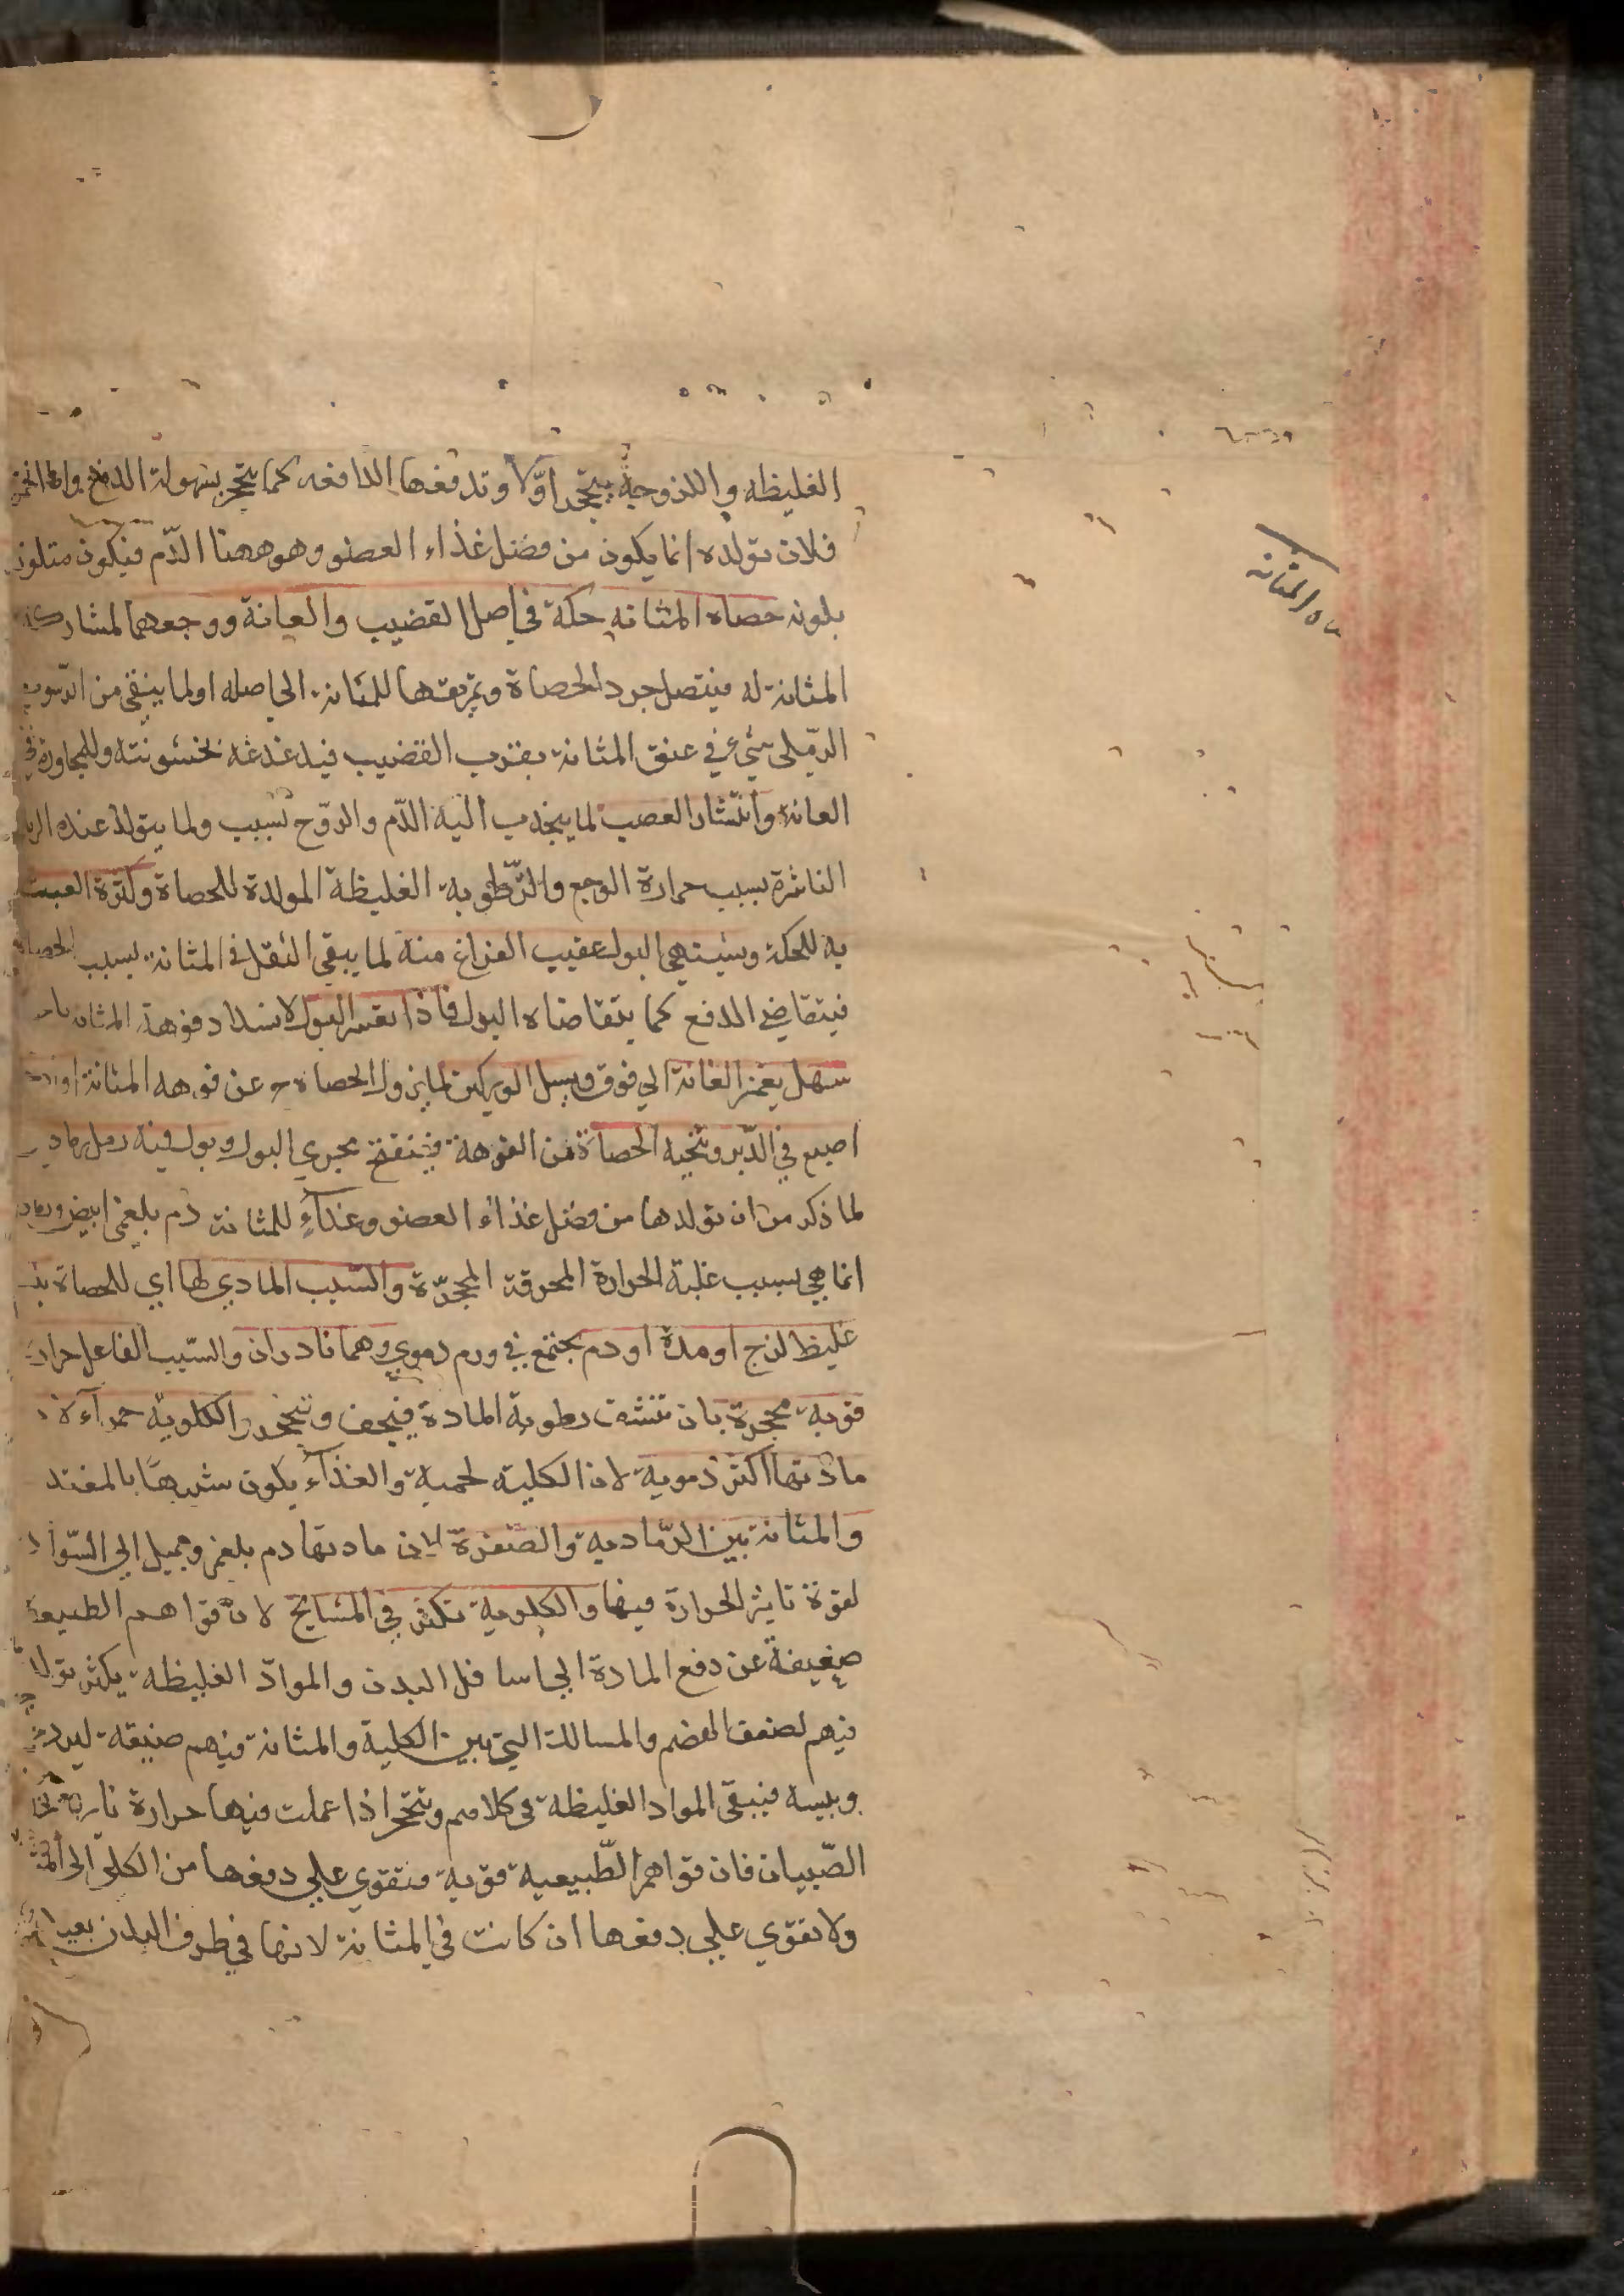 الغليظه واللزوجة يتحجر اولا وتدفعها الدافعه كما يتحجر بسهولة الدفع واما الحمرة
فلان تولده انما يكون من فضل غذاء العضو وهو ههنا الدم فيكون متلونا
بلونه حصاه المثانه حكة في اصل القضيب والعانة ووجعهما لمشاركة
المثانة له فيتصل جرد الحصاة وتمزيقها للمثانة الحاصله او لما يبقى من الرسوب
الرملى شيء في عنق المثانة بقرب القضيب فيدغدغه لخشونته وللمجاورة في
العانة وانتشار العصب لما ينجذب اليه الدم والروح بسبب ولما يتولد عنده
الناشرة بسبب حرارة الوجع والرطوبة الغليظة المولدة للحصاة وكثرة العبث
به للحكة ويشتهي البول عقيب الفراغ منه لما يبقى الثقل في المثانة بسبب الحصاة
فيتقاضي الدفع كما يتقاضاه البول فاذا تعسر البول لانسداد فوهة المثانه
سهل بغمز العانة الي فوق وبسل الوركين لما يزول الحصاة ح عن فوهه المثانة
اصبع في الدبر وتنحيه الحصاة من الفوهة فينفتح مجري البول وبول فيه رمل رمادي
لما ذكر من ان تولدها من فضل غذاء العضو وغذاء للمثانة دم بلغمي ابيض
انما هي بسبب غلبة الحرارة المحرقة المحجرة والسبب المادي لها اي للحصاة
غليظ لزج او مدة او دم يجتمع في ورم دموي وهما نادران والسبب الفاعل حرارة
قوية محجرة بان تنشف رطوبة المادة فيجف وتتحجر والكلوية حمرآء لان
مادتها اكثر دموية لان الكلية لحمية والغذآء يكون شبيها بالمغتذ
والمثانة بين الرمادية والصفرة لان مادتها دم بلغمي ويميل الى السواد
لقوة تاثير الحرارة فيها والكلوية تكثر في المشايخ لان قواهم الطبيعة
ضعيفة عن دفع المادة الي اسافل البدن والمواد الغليظة يكثر تولد
فيهم لضعف الهضم والمسالك التي بين الكلية والمثانة فيهم ضيقة لبرد
ويبسه فيبقى المواد الغليظة في كلاهم وتتحجر اذا عملت فيها حرارة نارية
الصبيان فان قواهم الطبيعية قوية فتقوي علي دفعها من الكلى الى
ولا تقوي علي دفعها ان كانت في المثانة لانها في طرف البدن بعيد
المثانه